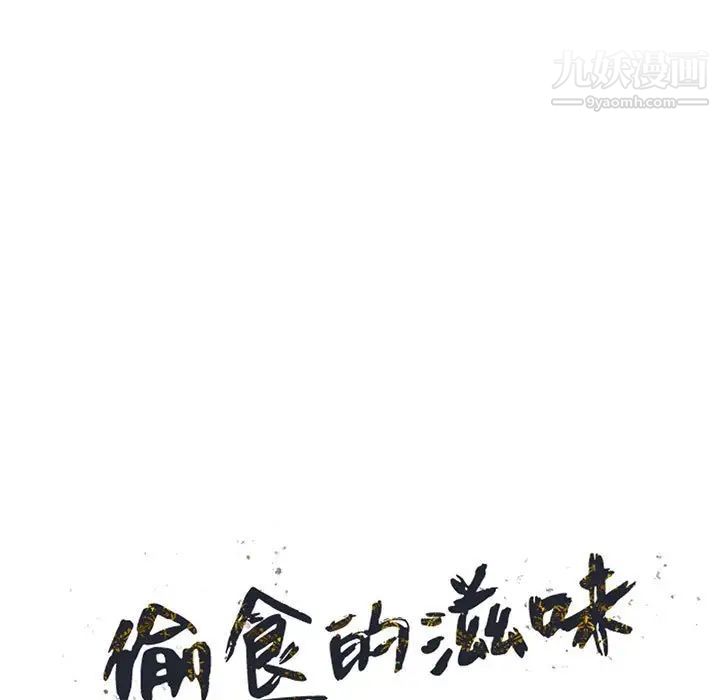 九妖漫画
9yaomh.com
偷食的滋味